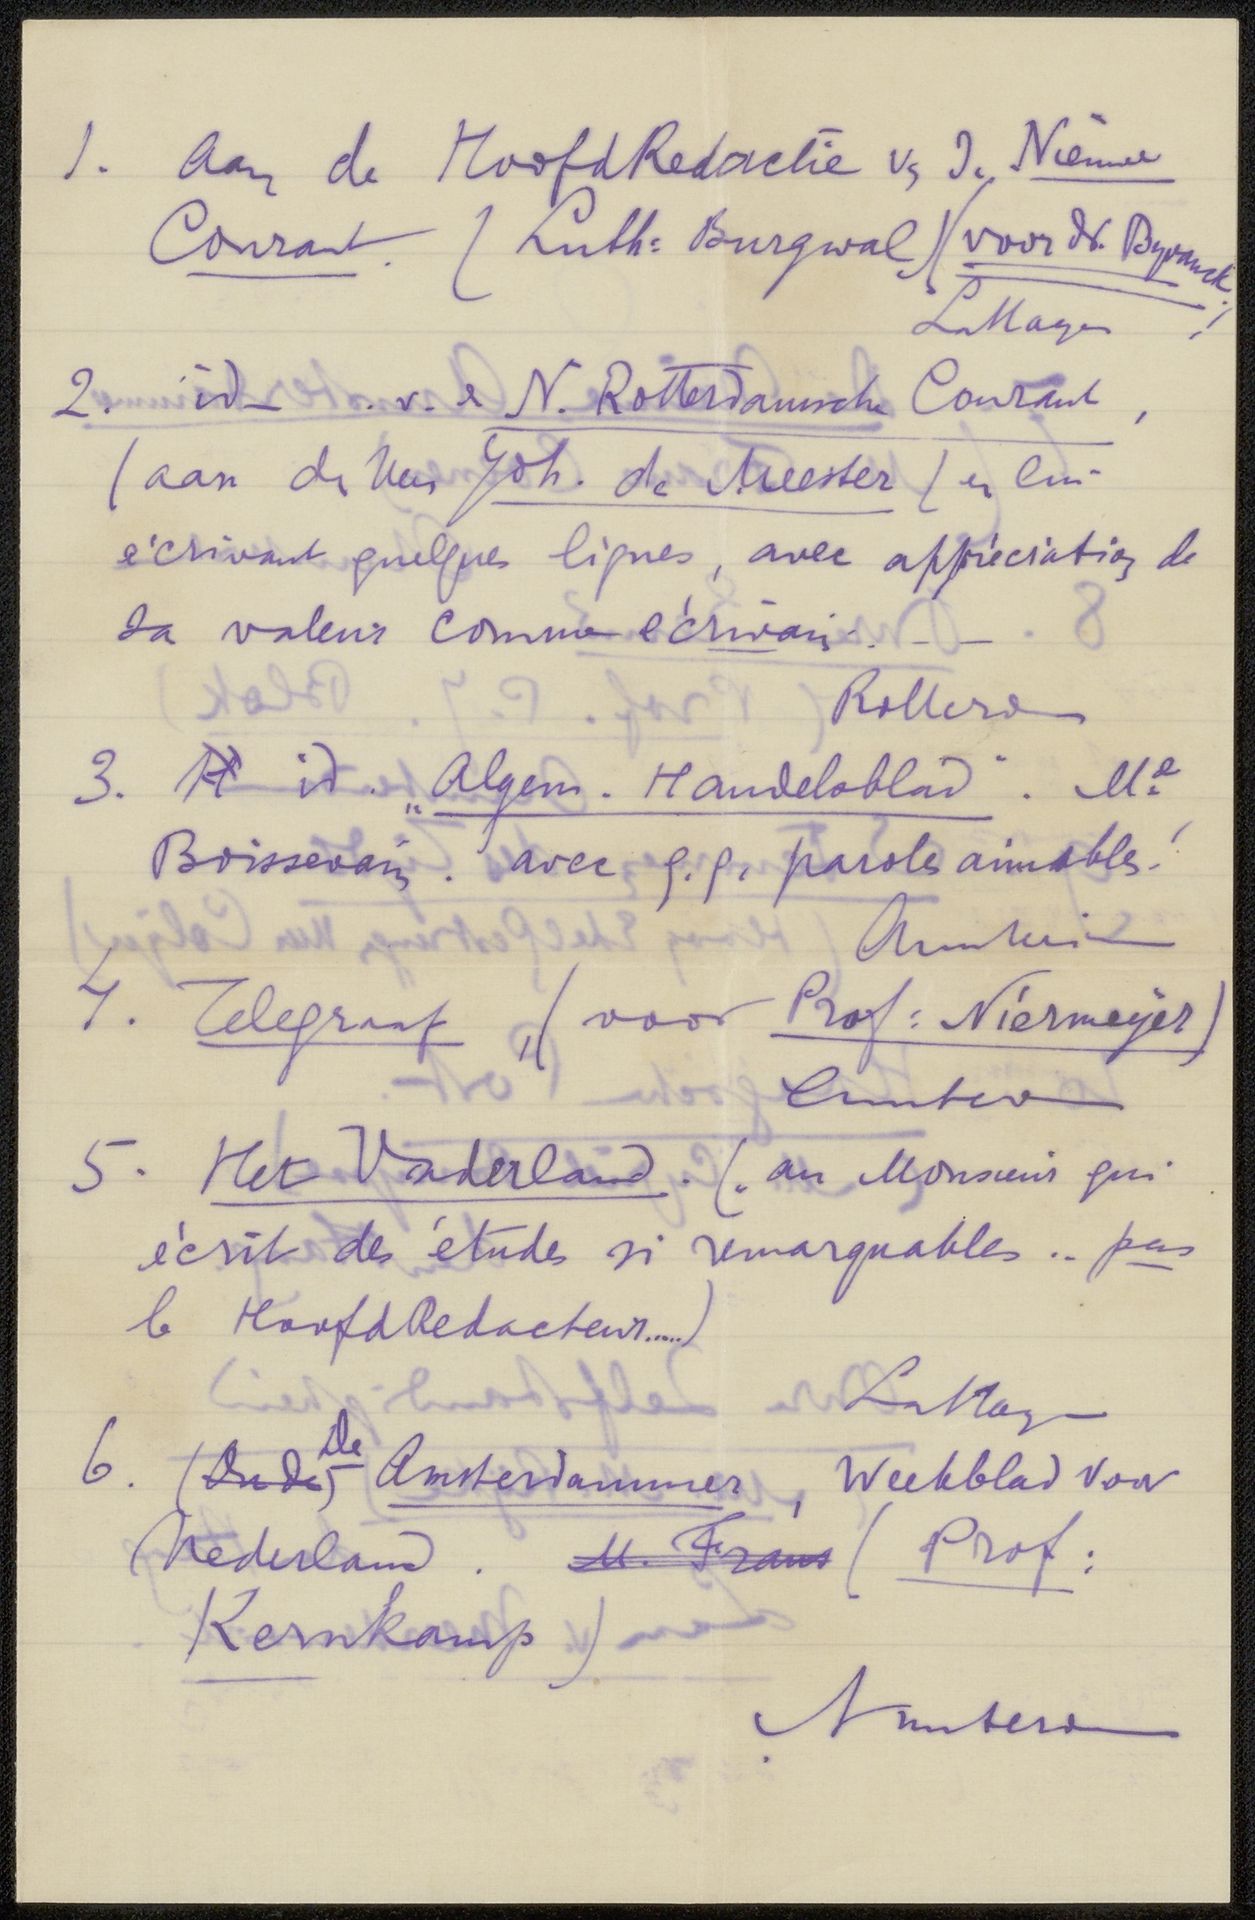 1. Aan de HoofdRedactie v. De Nieuwe
Courant. (Luth: Burgwal) (voor dr. Byvanck!)
La Haye
2. id— v. e N. Rotterdamsche Courant,
(aan den Heer Joh. de Meester) en lui
écrivant quelques lignes, avec appréciation de
sa valeur comme écrivain. — —
Rotterd
3. id. „Algem. Handelsblad". Mr
Boissevain. avec q.q. paroles aimables!
Amsterd
4. Telegraaf, (voor Prof: Niermeyer)
Amsterd
5. Het Vaderland. („au Monsieur qui
écrit des études si remarquables .. pas
le HoofdRedacteur.....)
La Haye
6. (Oude) De Amsterdammer, Weekblad voor
Nederland. M. Frans (Prof:
Kernkamp)
Amsterd